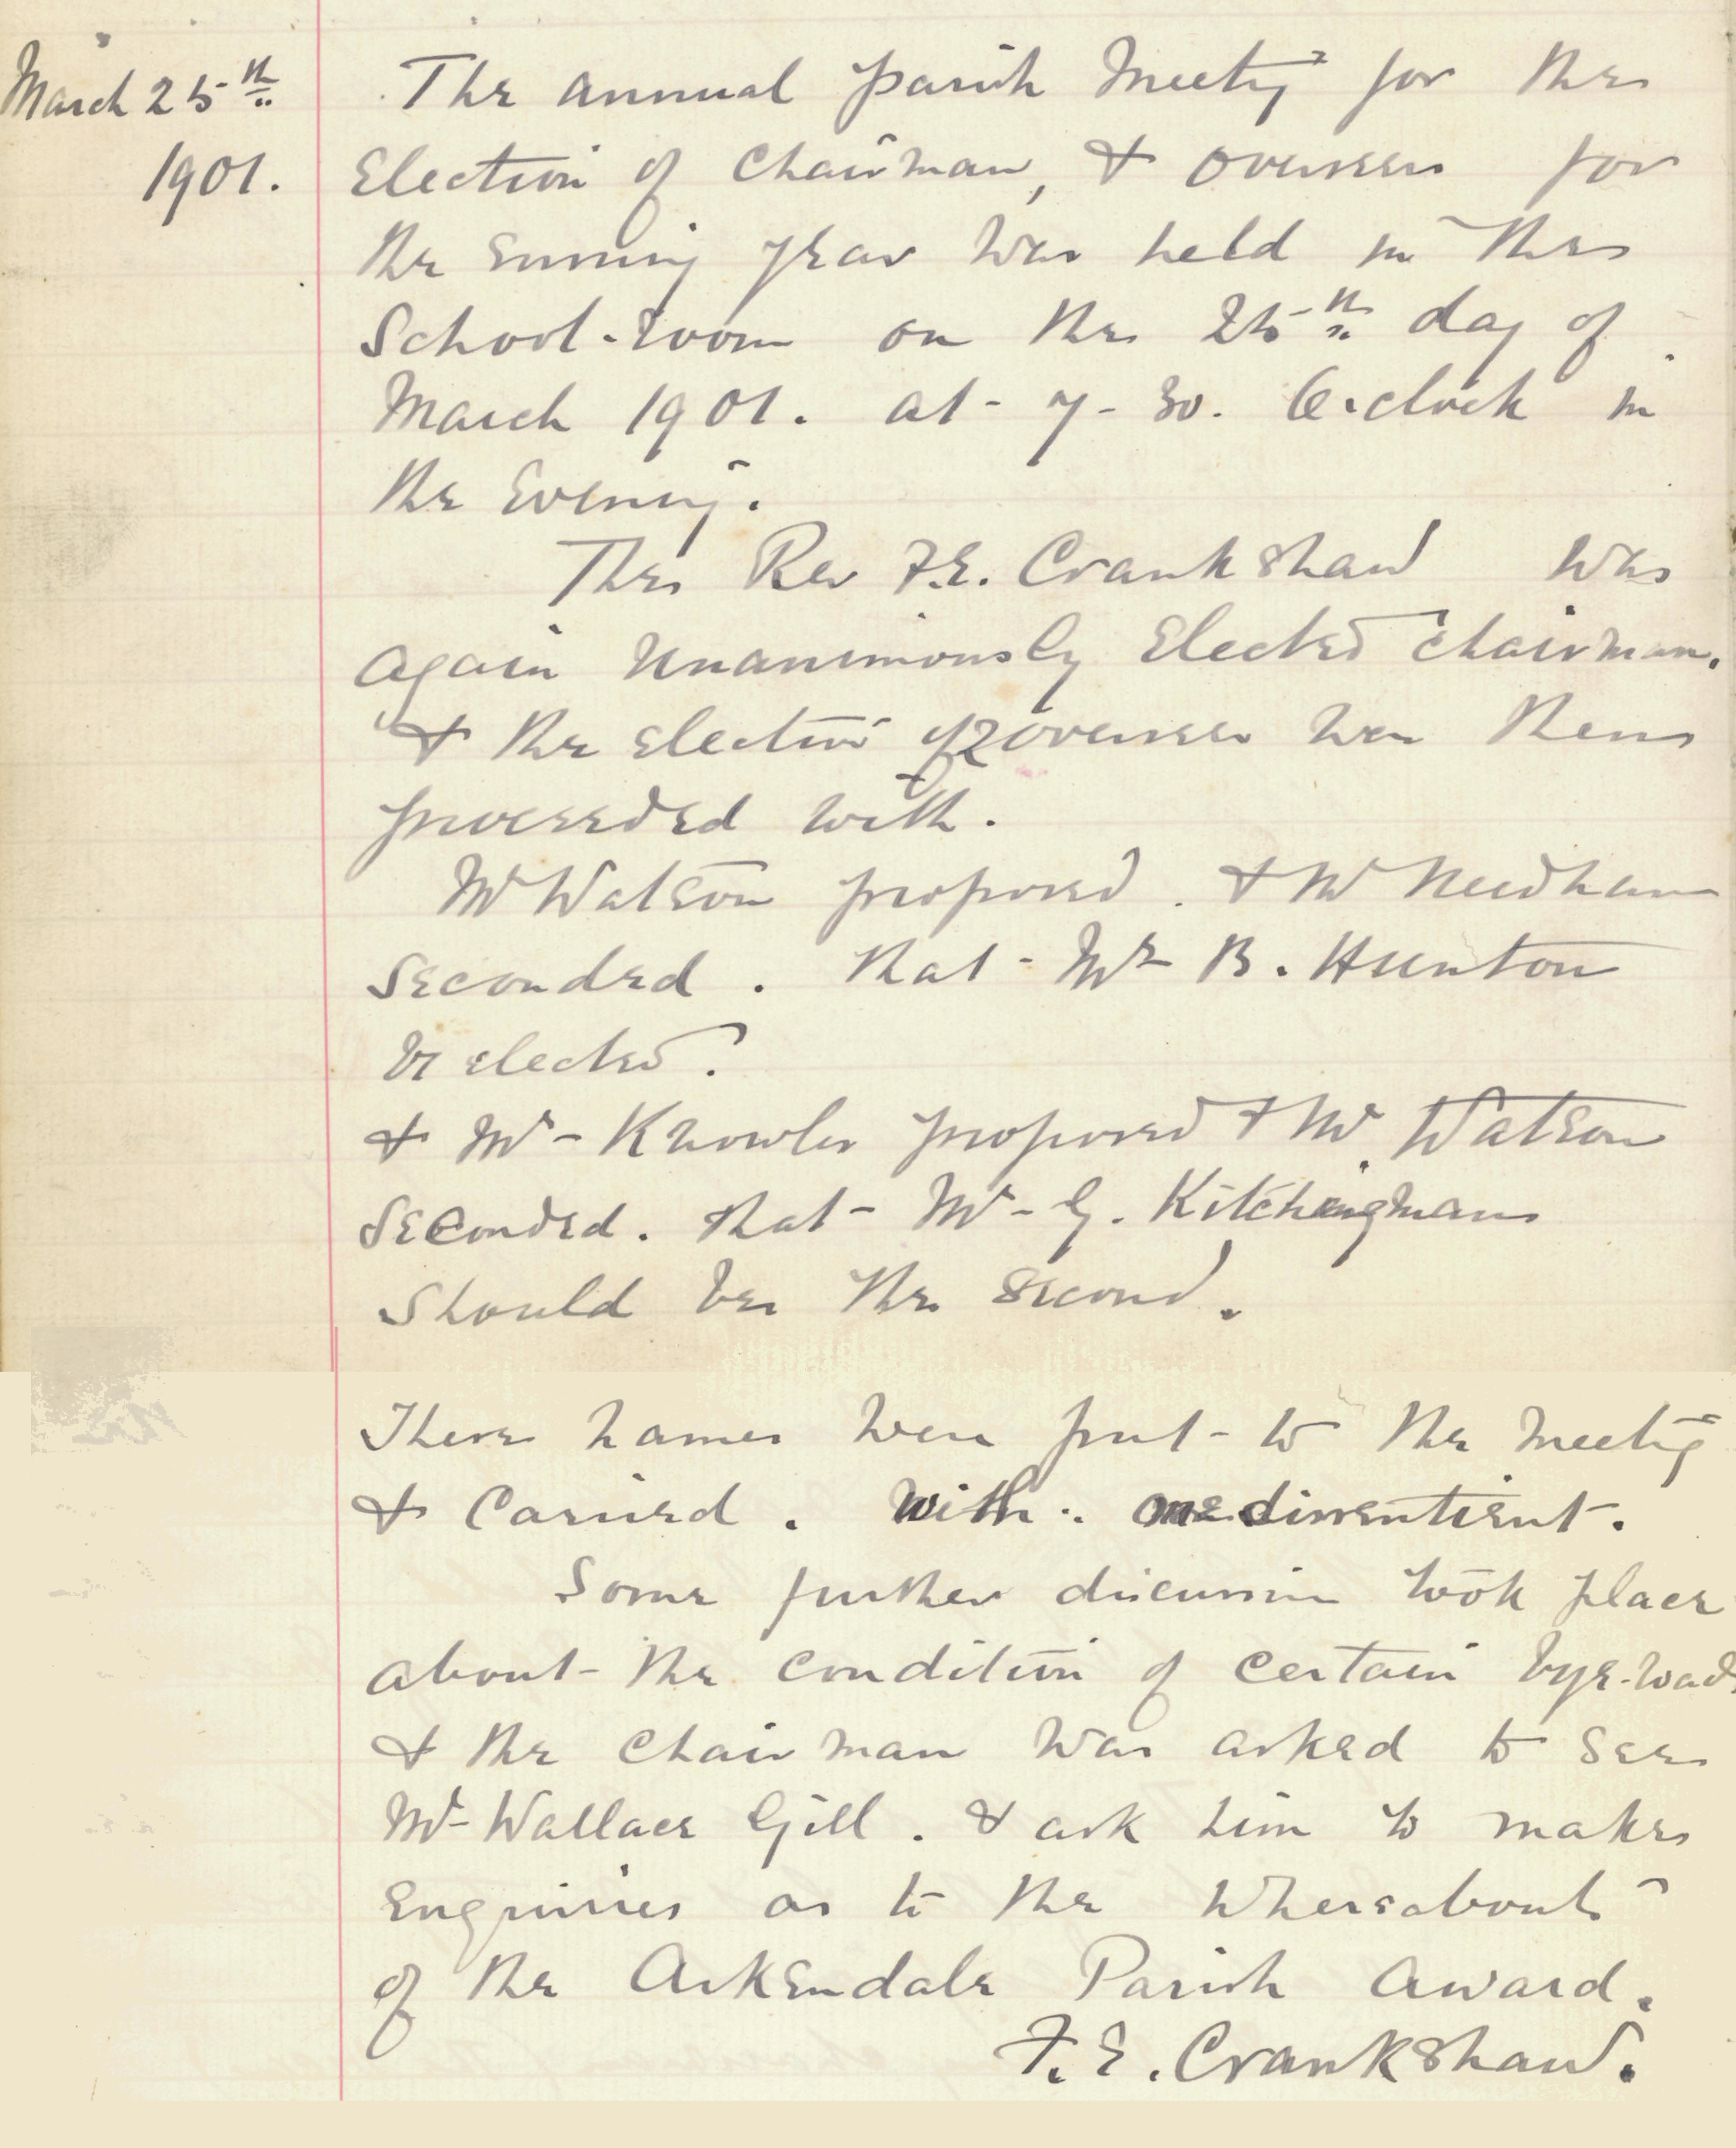 March 25th
1901.
The annual parish Meeting for the
Election of Chairman, & Overseers for
the Ensuing year was held in the
School-room on the 25th day of
March 1901. at 7-30. O'clock in
the Evening.
The Rev F.E. Crankshaw was
again unanimously Elected Chairman.
& the election of 2 overseers was then
proceeded with.
Mr Watson proposed. & Mr Needham
Seconded. that Mr B. Hunton
be elected.
& Mr Knowles proposed & Mr Watson
Seconded. that Mr G. Kitchingman
Should be the Second.
These names were put to the meeting
& Carried. with. one dissentient.
Some further discussion took place
about the condition of certain bye-roads
& the Chairman was asked to see
Mr Wallace Gill. & ask him to make
Enquiries as to the whereabouts
of the Arkendale Parish Award.
F.E. Crankshaw.